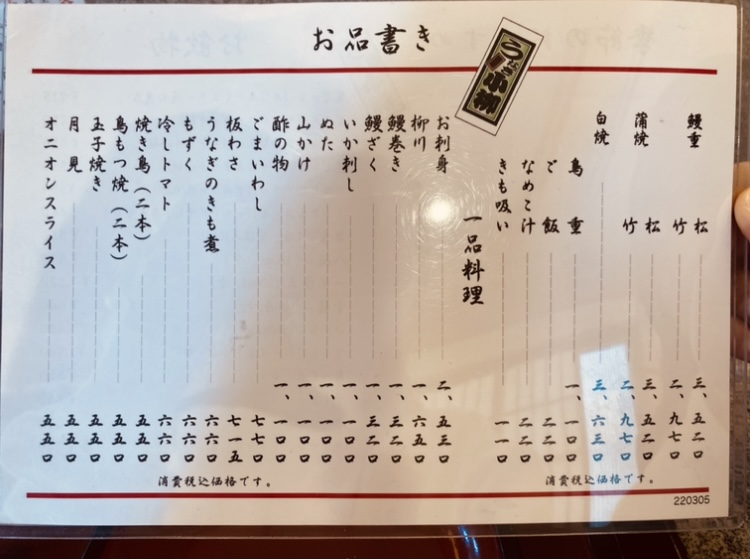 お品書き
うなぎ 小柳
鰻重 松 三、五二〇
竹 二、九七〇
蒲焼 松 三、五二〇
竹 二、九七〇
白焼 三、六三〇
鳥重 一、一〇〇
ご飯 二二〇
なめこ汁 二二〇
きも吸い 一一〇
消費税込価格です。
一品料理
お刺身 二、五三〇
柳川 一、六五〇
鰻巻き 一、三二〇
鰻ざく 一、三二〇
いか刺し 一、一〇〇
ぬた 一、一〇〇
山かけ 一、一〇〇
酢の物 一、一〇〇
ごまいわし 七七〇
板わさ 七一五
うなぎのきも煮 六六〇
もずく 六六〇
冷しトマト 六六〇
焼き鳥(二本) 五五〇
鳥もつ焼(二本) 五五〇
玉子焼き 五五〇
月見 五五〇
オニオンスライス 五五〇
消費税込価格です。
220305